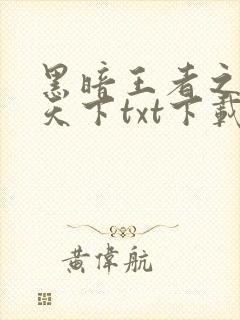 黑暗王者之
天下txt下載
黄偉航